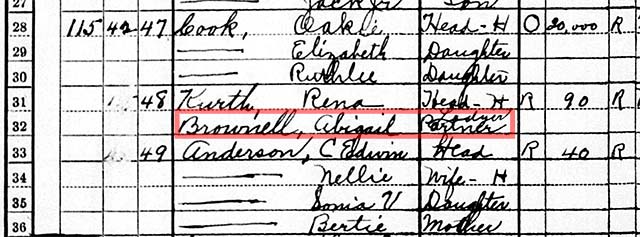 27 Jack Jr Son
28 115 42 47 Cook, Oakie Head-H O 20,000 R
29 —— Elizabeth Daughter
30 —— Ruthlee Daughter
31 48 Kurth, Rena Head-H R 90 R
32 Brownell, Abigail Partner Lodger
33 49 Anderson, C Edwin Head R 40 R
34 —— Nellie Wife-H
35 —— Sonia V Daughter
36 —— Bertie Mother